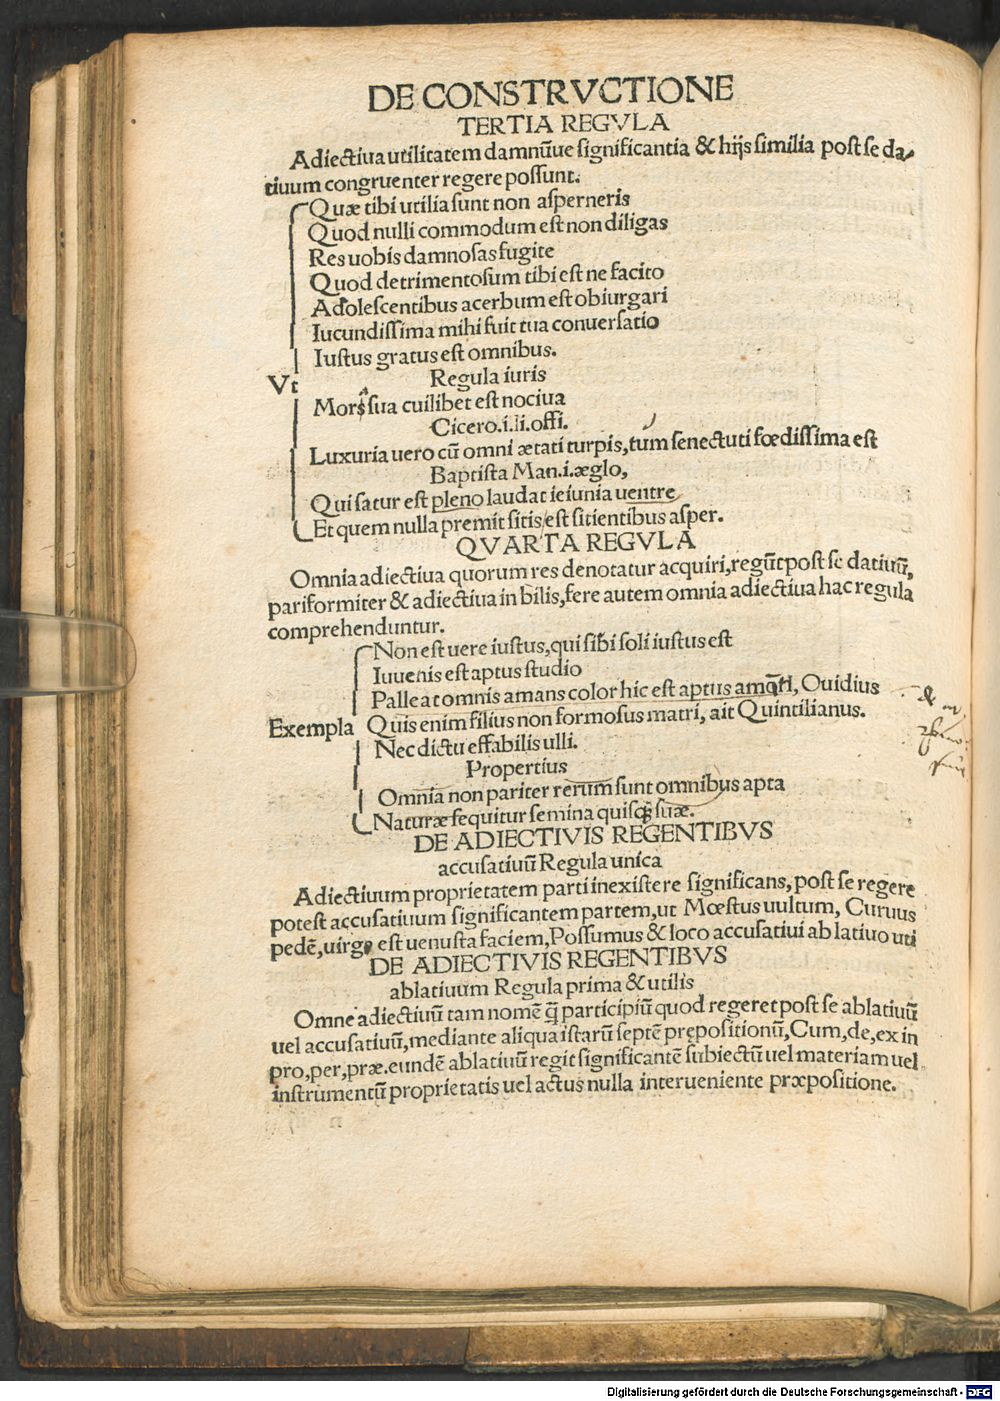 DE CONSTRVCTIONE
TERTIA REGVLA
Adiectiua utilitatem damnūue significantia & hijs similia post se da-
tiuum congruenter regere possunt.
Quæ tibi utilia sunt non asperneris
Quod nulli commodum est non diligas
Res uobis damnosas fugite
Quod detrimentosum tibi est ne facito
Adolescentibus acerbum est obiurgari
Iucundissima mihi fuit tua conuersatio
Iustus gratus est omnibus.
Vt
Regula iuris
Mors sua cuilibet est nociua
Cicero.i.li.offi.
Luxuria uero cū omni ætati turpis, tum senectuti fœdissima est
Baptista Man.i.æglo,
Qui satur est pleno laudat ieiunia uentre
Et quem nulla premit sitis/est sitientibus asper.
QVARTA REGVLA
Omnia adiectiua quorum res denotatur acquiri, regūt post se datiuū,
pariformiter & adiectiua in bilis, fere autem omnia adiectiua hac regula
comprehenduntur.
Non est uere iustus, qui sibi soli iustus est
Iuuenis est aptus studio
Palleat omnis amans color hic est aptus amāti, Ouidius
Exempla Quis enim filius non formosus matri, ait Quintilianus.
Nec dictu effabilis ulli.
Propertius
Omnia non pariter rerum sunt omnibus apta
Naturæ sequitur semina quisq; suæ.
DE ADIECTIVIS REGENTIBVS
accusatiuū Regula unica
Adiectiuum proprietatem parti inexistere significans, post se regere
potest accusatiuum significantem partem, ut Mœstus uultum, Curuus
pedē, uirgo est uenusta faciem, Possumus & loco accusatiui ablatiuo uti
DE ADIECTIVIS REGENTIBVS
ablatiuum Regula prima & utilis
Omne adiectiuū tam nomē q̄ participiū quod regeret post se ablatiuū
uel accusatiuū, mediante aliqua istarū septē prępositionū, Cum, de, ex in
pro, per, præ. eundē ablatiuū regit significantē subiectū uel materiam uel
instrumentū proprietatis uel actus nulla interueniente præpositione.
Digitalisierung gefördert durch die Deutsche Forschungsgemeinschaft - DFG